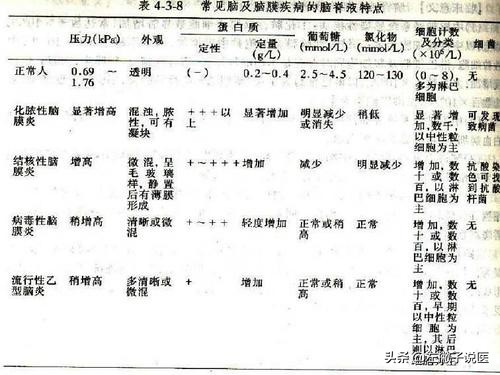 表 4-3-8 常见脑及脑膜疾病的脑脊液特点
压力(kPa) 外观 蛋白质 葡萄糖(mmol/L) 氯化物(mmol/L) 细胞计数及分类(×10⁶/L) 细菌
定性 定量(g/L)
正常人 0.69～1.76 透明 (−) 0.2~0.4 2.5~4.5 120~130 (0~8), 多为淋巴细胞 无
化脓性脑膜炎 显著增高 混浊,脓性,可有凝块 +++以上 显著增加 明显减少或消失 稍低 显著增加,数千,以中性粒细胞为主 可发现致病菌
结核性脑膜炎 增高 微混,呈毛玻璃样,静置后有薄膜形成 +~+++ 增加 减少 明显减少 增加,数十或数百,以淋巴细胞为主 抗酸染色可找到抗酸杆菌
病毒性脑膜炎 稍增高 清晰或微混 +~++ 轻度增加 正常或稍高 正常 增加,数十或数百,以淋巴细胞为主 无
流行性乙型脑炎 稍增高 多清晰或微混 + 增加 正常或稍高 正常 增加,数十或数百,早期以中性粒细胞为主,其后则以淋巴 无
头条